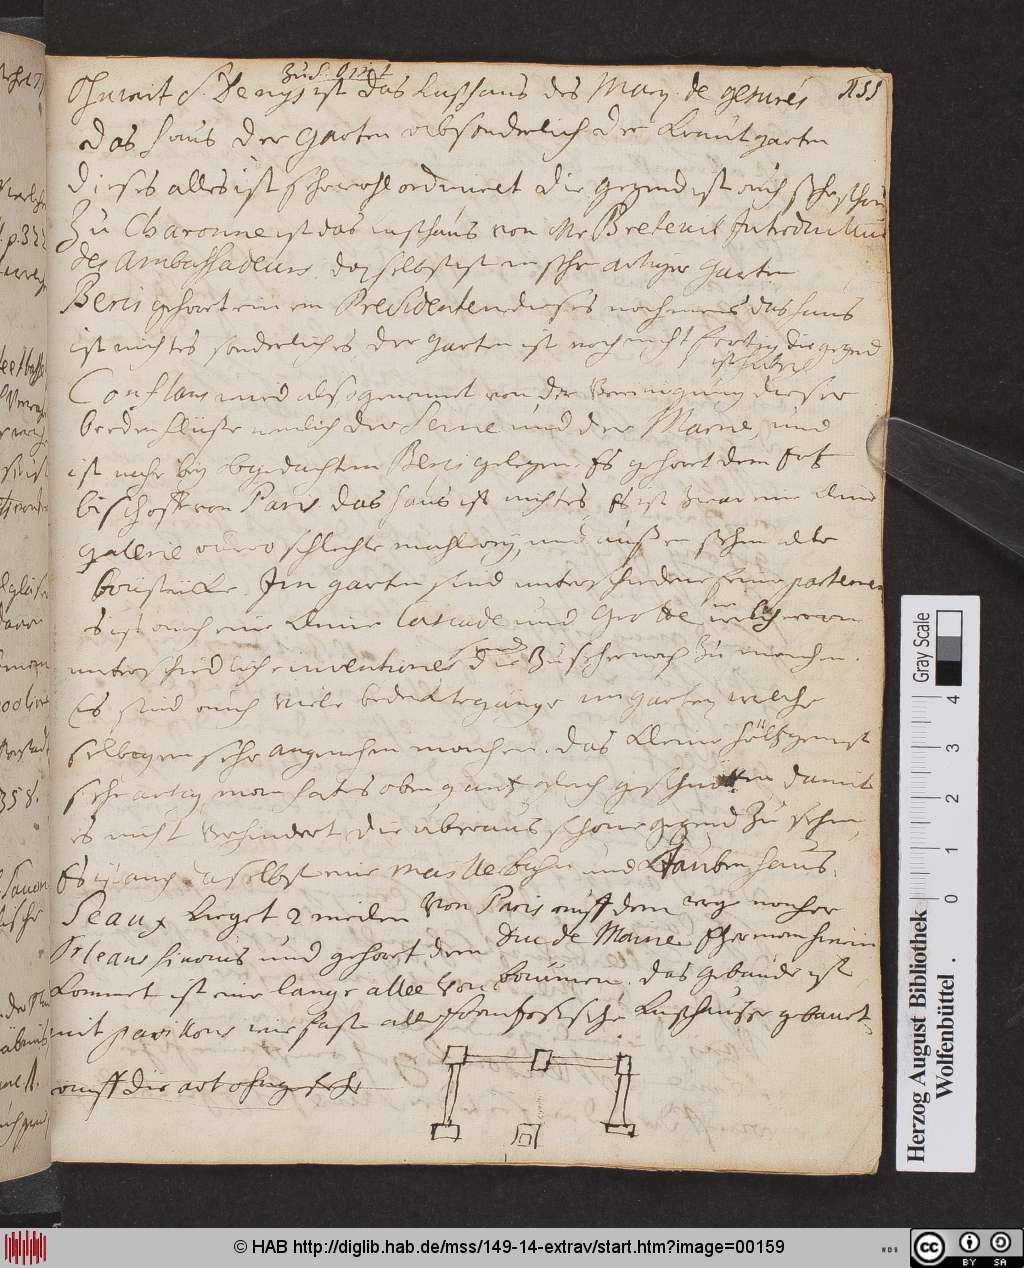 155
zu S. Omet
Ohnweit S. Denys ist das Lusthaus des Marq. de Gesures
das Haus der Garten absonderlich der Krautgarten
dieses alles ist sehr wohl ordinirt die gegend ist auch sehr schön
Zu Charonne ist das Lusthaus von Mr Breteuil Introducteur
des Ambassadeurs. daselbst ist ein sehr artiger Garten
Bercis gehört einem Presidenten dieses nahmens das Haus
ist nichts sonderliches der Garten ist noch nicht fertig die gegend
ist hübsch
Conflans wird also genennet von der Vereinigung dieser
beeden flüsse nemlich der Seine und der Marne, und
ist nahe bey obgedachtem Bercis gelegen. Es gehört dem Ertz
bischoff von Paris das Haus ist nichts, Es ist zwar eine kleine
gallerie schlechte mahlerey, und aussen stehen alte
Im garten sind unterschiedene feine parterren
Es ist auch eine kleine Cascade und Grotte welche
unterschiedliche inventiones und die Zuseher nass zu machen.
Es sind auch viele bedeckte gänge im garten welche
selbigen sehr angenehm machen. das kleine höltzgen ist
sehr artig man hat es oben gantz gleich geschnitten damit
es nicht verhindert die überaus schöne gegend zu sehen,
Es ist auch daselbst eine Maillebahn und Taubenhaus.
Seaux lieget 2 meilen von Paris auff dem wege nacher
Orleans hinaus und gehöret dem Duc de Maine. Eher man hinein
kommet ist eine lange allee von bäumen. das gebäude ist
mit pavillons wie fast alle frantzösische Lusthäuser gebauet
auff die art ohngefehr
Gray Scale
0 1 2 3 4
Herzog August Bibliothek
Wolfenbüttel
© HAB http://diglib.hab.de/mss/149-14-extrav/start.htm?image=00159
cc BY SA